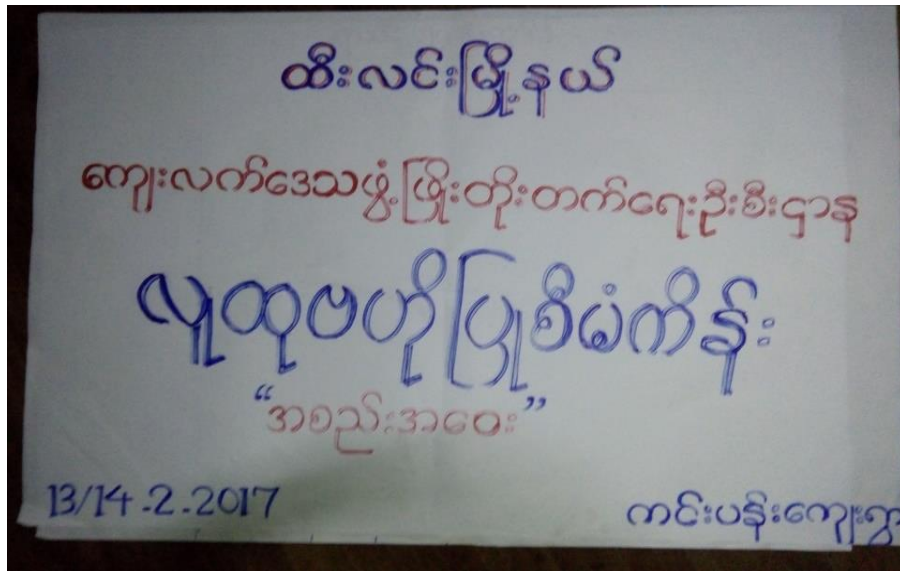 ထီးလင်းမြို့နယ်
ကျေးလက်ဒေသဖွံ့ဖြိုးတိုးတက်ရေးဦးစီးဌာန
လူထုဗဟိုပြုစီမံကိန်း
“အစည်းအဝေး”
13/14.2.2017
ကင်းပန်းကျေးရွာ